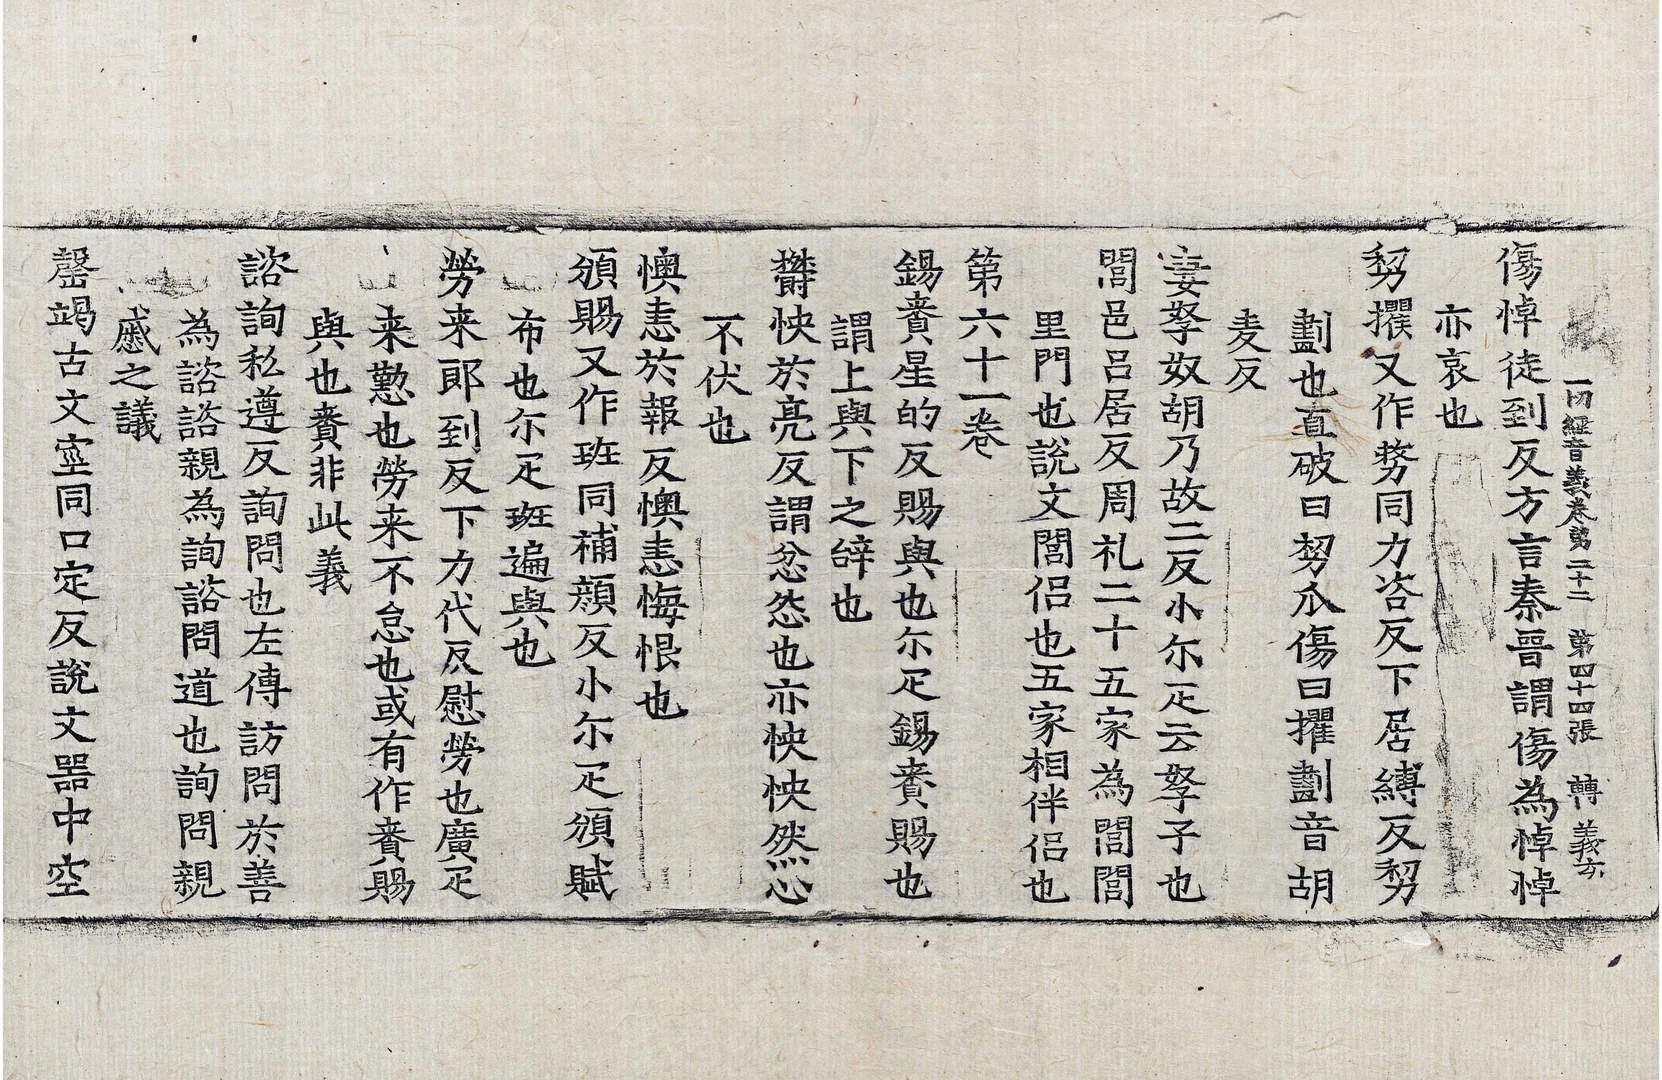 一切經音義卷第二十二　第四十四張　轉　義玄
傷悼徒到反方言秦晉謂傷為悼悼
亦哀也
㓨攫又作剺同力咨反下居縛反㓨
劃也直破曰㓨爪傷曰攫劃音胡
麦反
妻孥奴胡乃故二反小尒疋云孥子也
閭邑呂居反周礼二十五家為閭閭
里門也說文閭侶也五家相伴侶也
第六十一卷
錫賚星的反賜與也尒疋錫賚賜也
謂上與下之辝也
欝怏於亮反謂忿怨也亦怏怏然心
不伏也
懊恚於報反懊恚悔恨也
頒賜又作班同補顏反小尒疋頒賦
布也尒疋班遍與也
勞来郎到反下力代反慰勞也廣疋
来懃也勞来不怠也或有作賚賜
與也賚非此義
諮詢私遵反詢問也左傳訪問於善
為諮諮親為詢諮問道也詢問親
戚之議
罄竭古文窒同口定反說文器中空